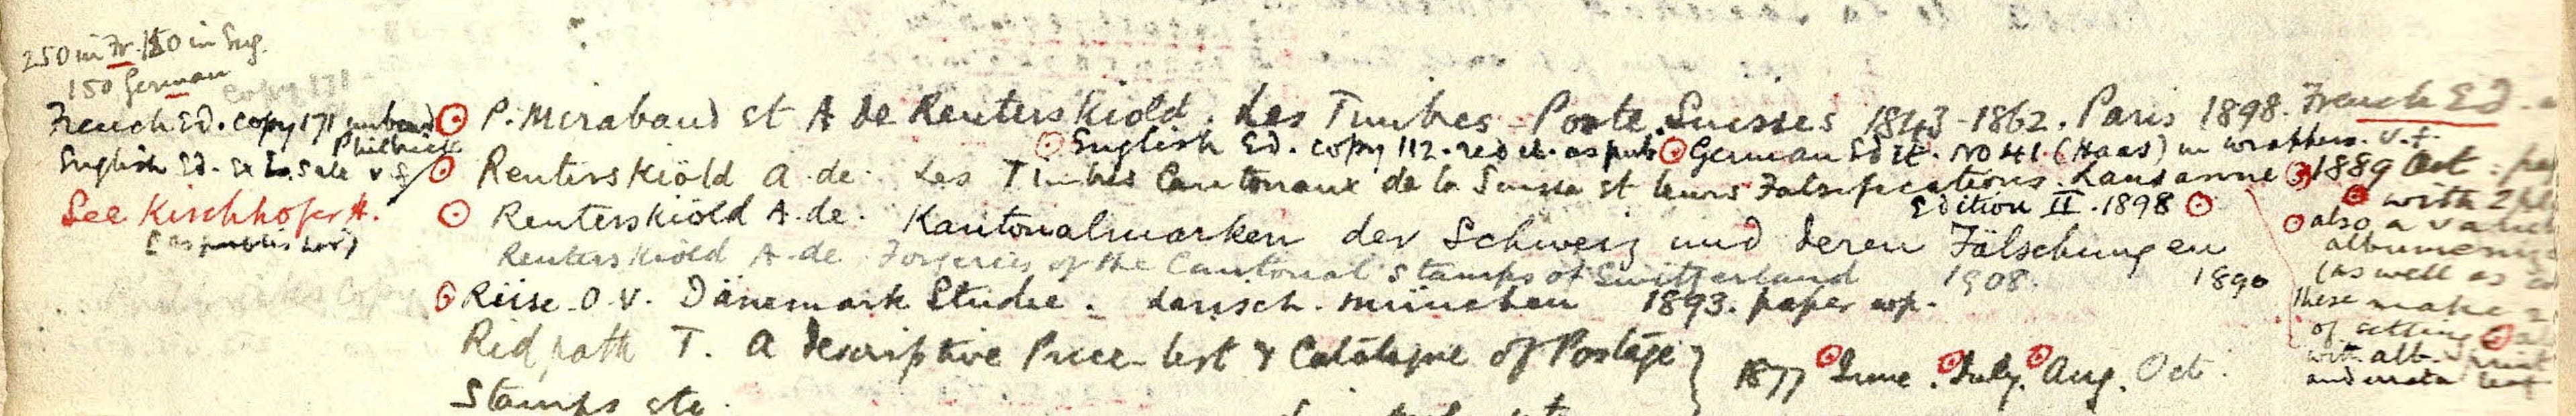 250 in Fr. 150 in Eng.
150 German
copy 171
French Ed. copy 171 unbound
Philbrick
English Ed. Ex sale v.f.
See Kirchhofer H.
(as publisher)
P. Mirabaud et A de Reuterskiold. Les Timbres-Poste Suisses 1843-1862. Paris 1898. French Ed.
English Ed. copy 112. red cl. as pub. German Edit. No 41. (Haas) in wrappers. v.f.
Reuterskiöld A. de. Les Timbres Cantonaux de la Suisse et leurs Falsifications. Lausanne 1889 Oct.
Edition II. 1898
with 2
Reuterskiöld A. de. Kantonalmarken der Schweiz und deren Fälschungen
1890
Reuterskiöld A. de Forgeries of the Cantonal Stamps of Switzerland 1908.
also a
(as well as
these make 2
of setting
with alb.
Reise. O.V. Dänemark Studie. Larisch. München 1893. paper wp.
Ridpath T. A descriptive Price-list & Catalogue of Postage } 1877 June. July. Aug. Oct.
Stamps etc.